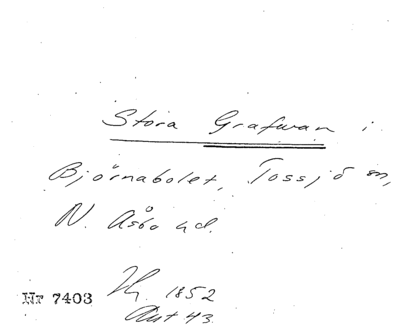 Stora Grafwan i
Björnabolet, Tossjö sn,
N. Åsbo hd.
Nr 7403
1852
Ant 43.